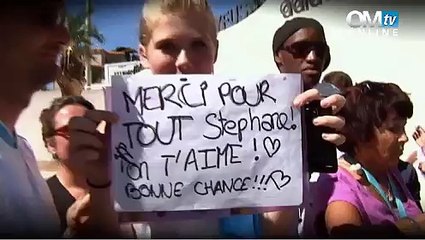 OMtv
ONLINE
MERCI POUR
TOUT Stephane!
on T'AIME! ♡
BONNE CHANCE!!! ♡